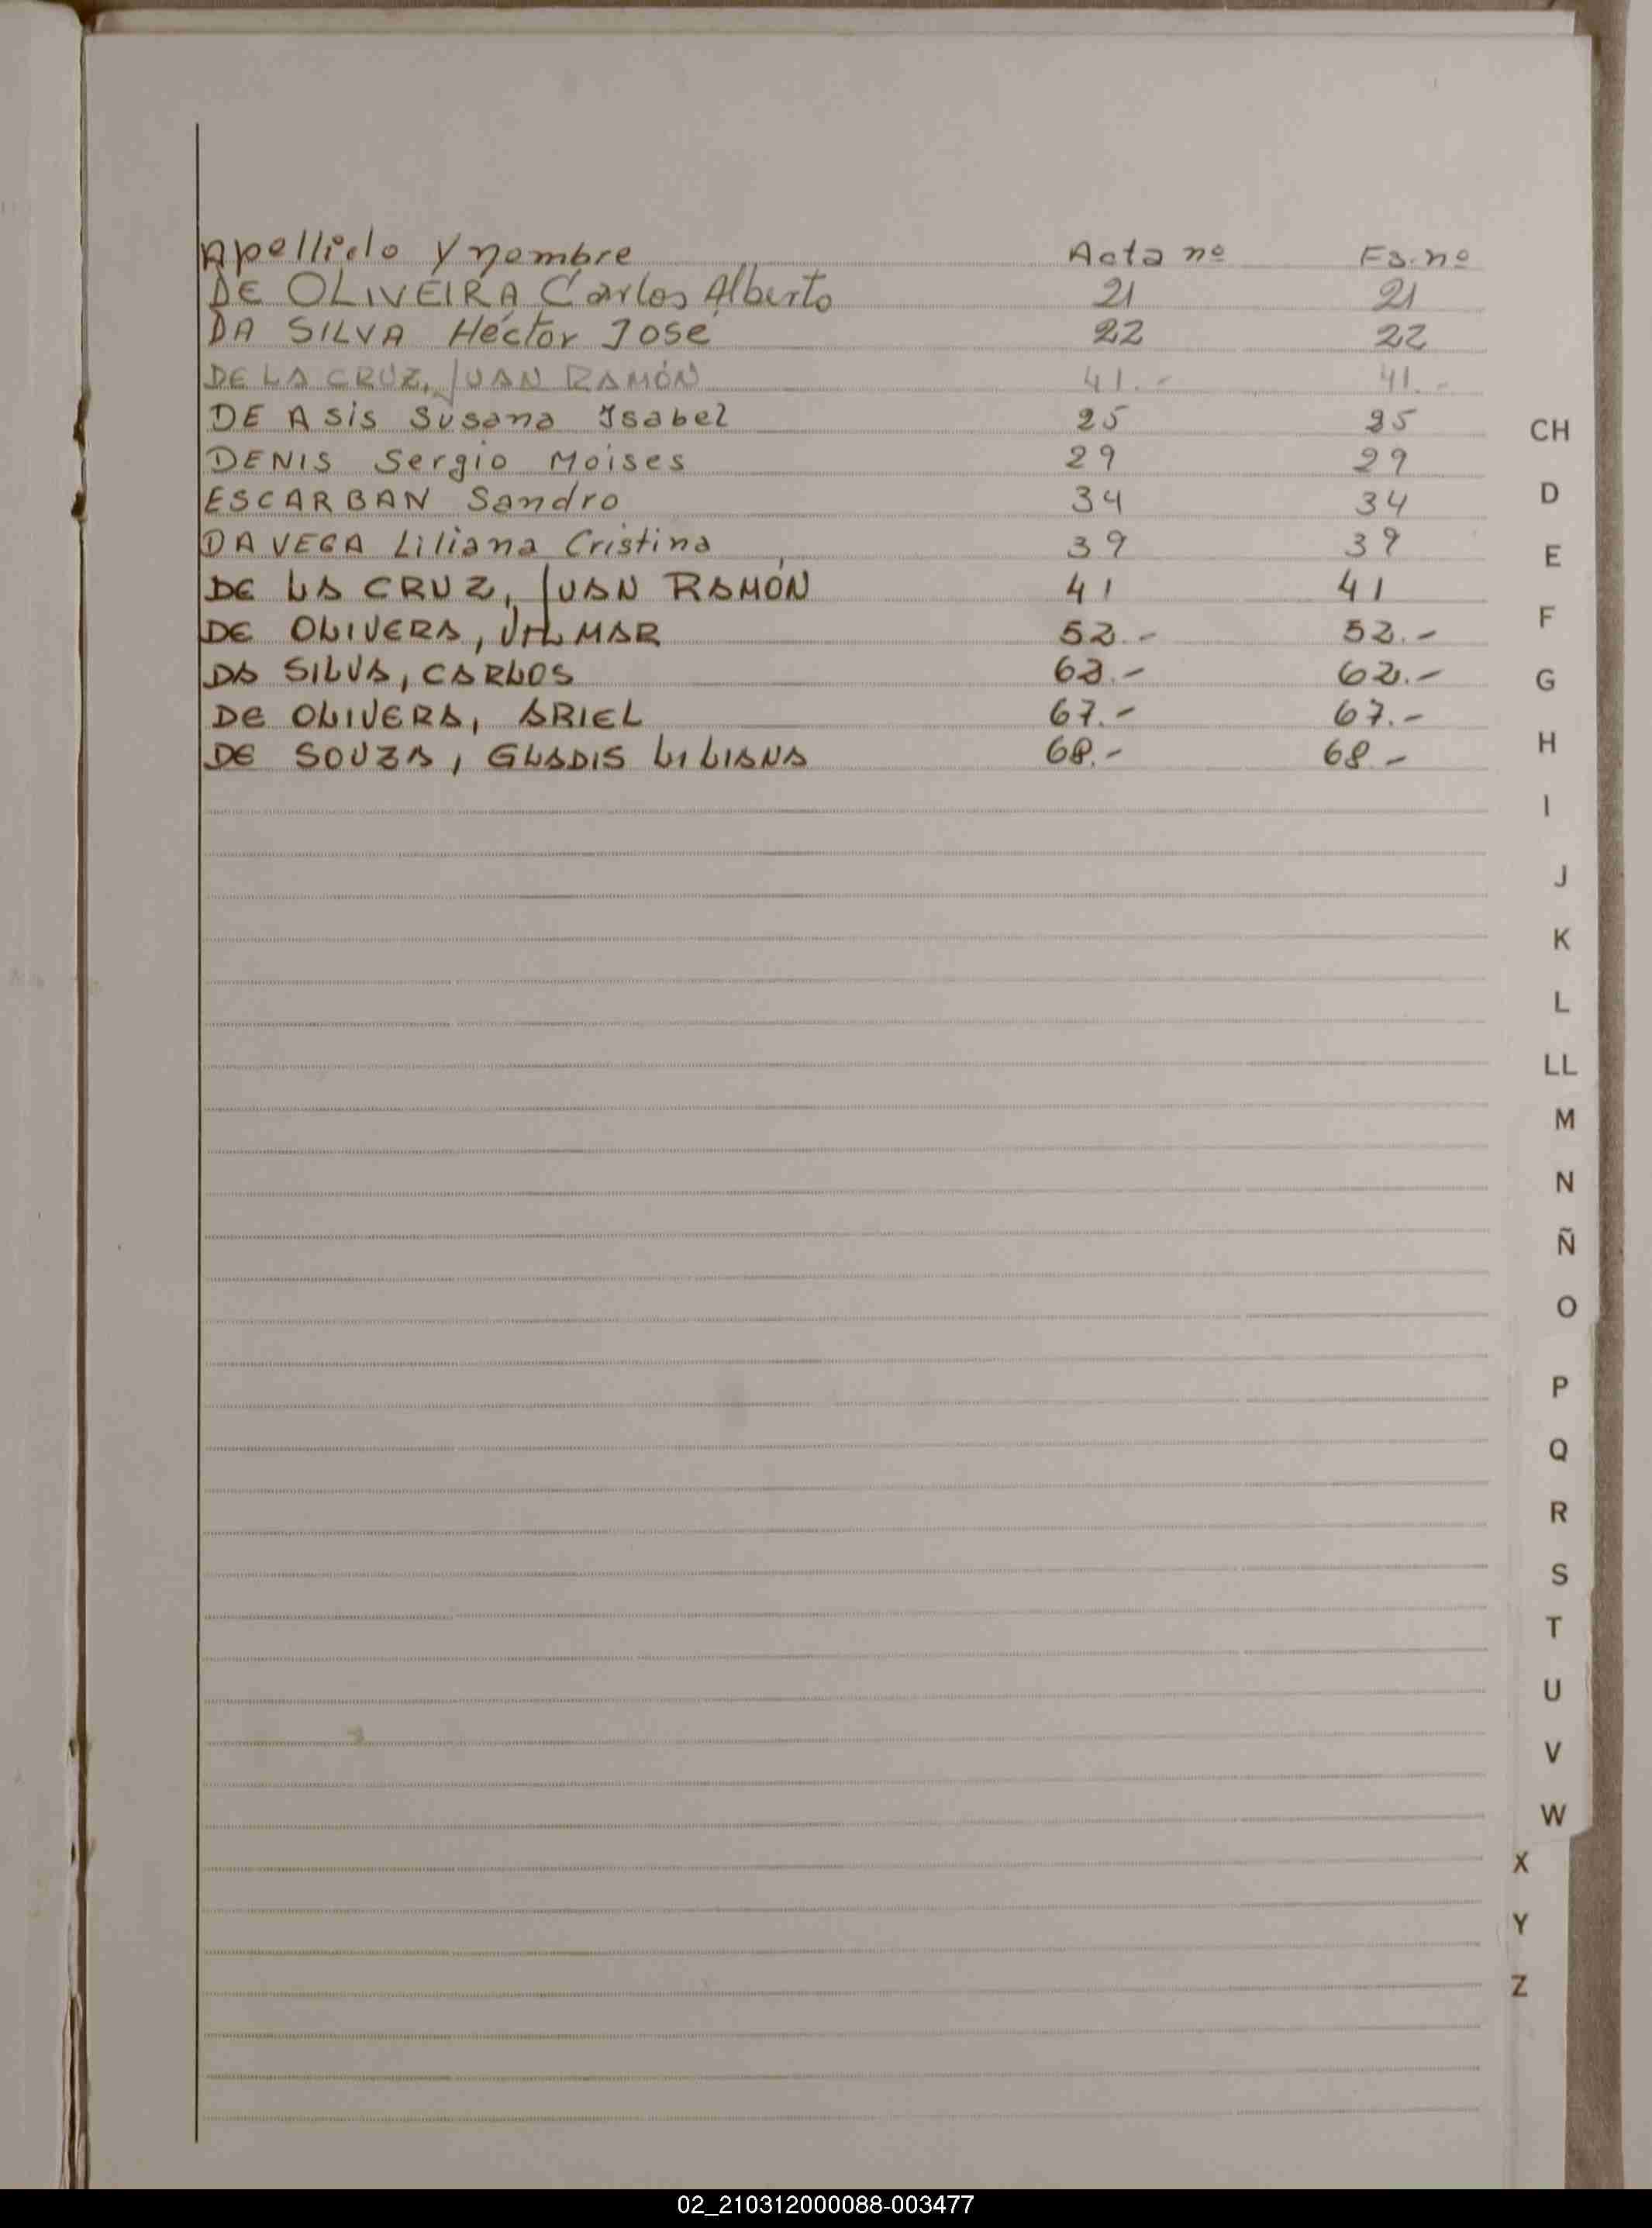 Apellido y nombre Acta nº Fs. nº
DE OLIVEIRA Carlos Alberto 21 21
DA SILVA Héctor José 22 22
DE LA CRUZ, JUAN RAMÓN 41.- 41.-
DE ASIS Susana Isabel 25 25
DENIS Sergio Moises 29 29
ESCARBAN Sandro 34 34
DA VEGA Liliana Cristina 39 39
DE LA CRUZ, JUAN RAMÓN 41 41
DE OLIVERA, VILMAR 52.- 52.-
DA SILVA, CARLOS 62.- 62.-
DE OLIVERA, ARIEL 67.- 67.-
DE SOUZA, GLADIS LILIANA 68.- 68.-
CH
D
E
F
G
H
I
J
K
L
LL
M
N
Ñ
O
P
Q
R
S
T
U
V
W
X
Y
Z
02_210312000088-003477